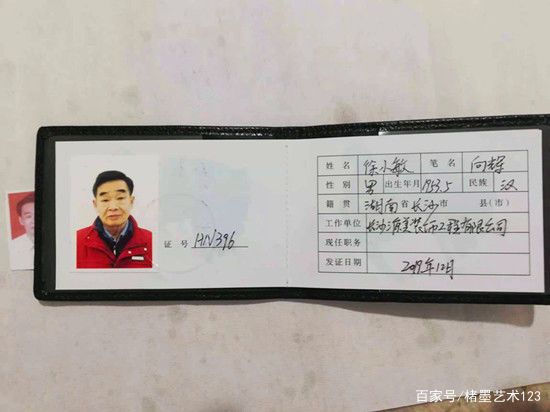 证 号 HN396
姓 名 徐小敏 笔 名 向辉
性 别 男 出生年月 1953.5 民族 汉
籍 贯 湖南省长沙市 县(市)
工作单位 长沙 装饰工程有限公司
现任职务
发证日期 2019年12月
百家号/楮墨艺术123